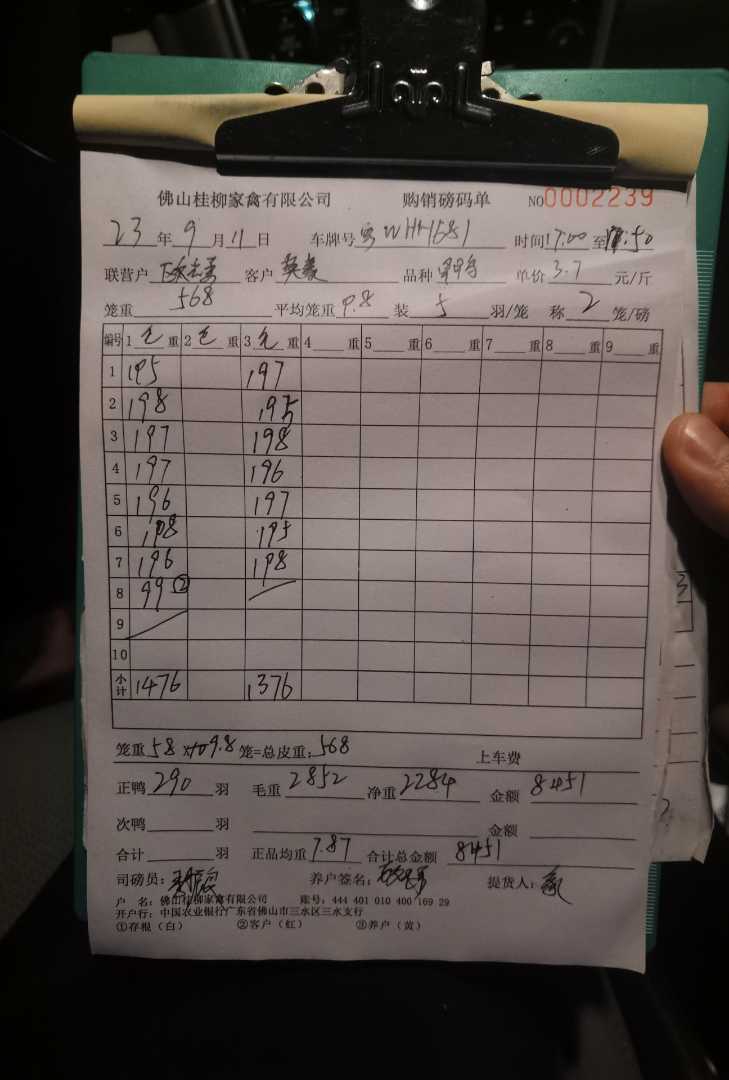 佛山桂柳家禽有限公司 购销磅码单 NO0002239
23年9月11日 车牌号 WHM681 时间17:00至:50
联营户 客户 品种 单价3.7元/斤
笼重568 平均笼重9.8 装5羽/笼 称2笼/磅
编号 1毛重 2毛重 3毛重 4重 5重 6重 7重 8重 9重
1 195 197
2 198 195
3 197 198
4 197 196
5 196 197
6 198 195
7 196 198
8 99②
9
10
小计 1476 1376
笼重58×9.8笼=总皮重:568 上车费
正鸭290羽 毛重2852 净重2284 金额8451
次鸭羽 金额
合计羽 正品均重7.87 合计总金额8451
司磅员: 养户签名: 提货人:
户 名:佛山桂柳家禽有限公司 账号:444 401 010 400 169 29
开户行:中国农业银行广东省佛山市三水区三水支行
①存根(白) ②客户(红) ③养户(黄)